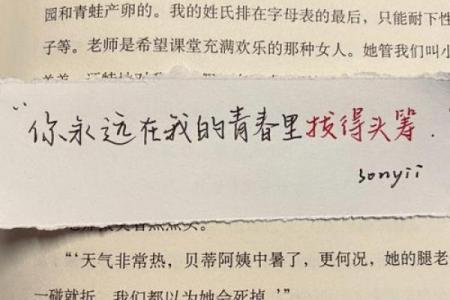 园和青蛙产卵的。我的姓氏排在字母表的最后，只能耐下性
子等。老师是希望课堂充满欢乐的那种女人。她管我们叫小
“你永远在我的青春里拔得头筹.”
sonyii
“‘天气非常热，贝蒂阿姨中暑了，更何况，她的腿老
一碰就折，我们都以为她会死掉。’